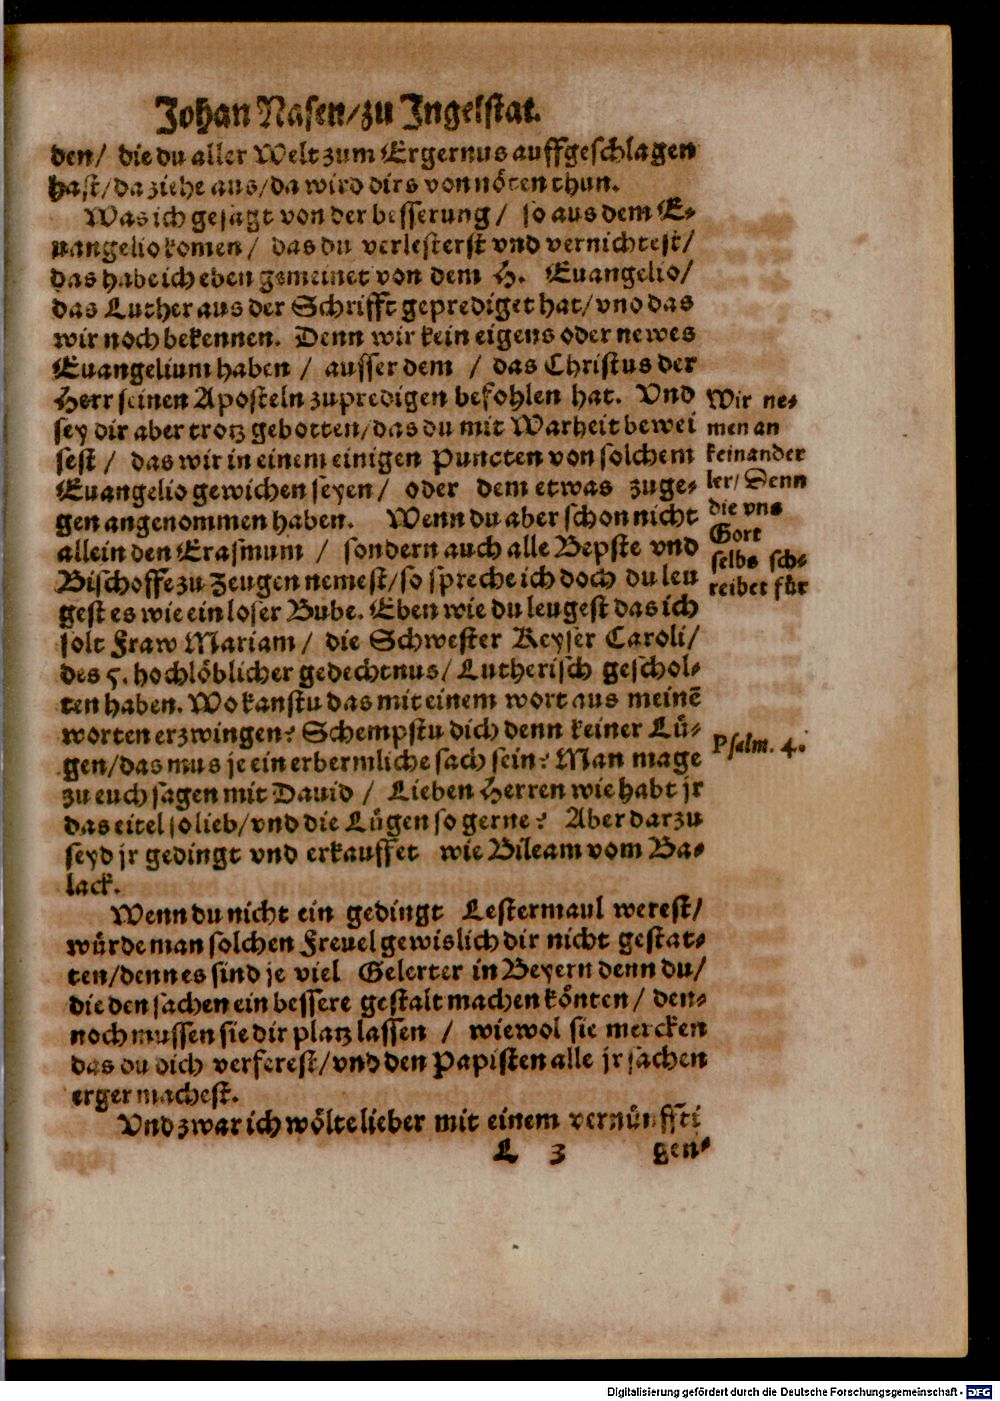 Johan Nasen/zu Jngelstat.
den/ die du aller Welt zum Ergernus auffgeschlagen
hast/da ziehe aus/da wird dirs von nöten thun.
Was ich gesagt von der besserung/ so aus dem E-
uangelio komen/ das du verlesterst vnd vernichtest/
das habe ich eben gemeinet von dem H. Euangelio/
das Luther aus der Schrifft geprediget hat/vnd das
wir noch bekennen. Denn wir kein eigens oder newes
Euangelium haben / ausser dem / das Christus der
Herr seinen Aposteln zupredigen befohlen hat. Vnd
sey dir aber trotz gebotten/das du mit Warheit bewei
sest / das wir in einem einigen Puncten von solchem
Euangelio gewichen seyen/ oder dem etwas zuge-
gen angenommen haben. Wenn du aber schon nicht
allein den Erasmum / sondern auch alle Bepste vnd
Bischoffe zu Zeugen nemest/so spreche ich doch du leu
gest es wie ein loser Bube. Eben wie du leugest das ich
solt Fraw Mariam/ die Schwester Keyser Caroli/
des 5. hochlöblicher gedechtnus/ Lutherisch geschol-
ten haben. Wo kanstu das mit einem wort aus meinẽ
worten erzwingen? Schempstu dich denn keiner Lü-
gen/das mus je ein erbermliche sach sein? Man mage
zu euch sagen mit Dauid / Lieben Herren wie habt jr
das eitel so lieb/vnd die Lügen so gerne? Aber darzu
seyd jr gedingt vnd erkauffet wie Bileam vom Ba-
lack.
Wenn du nicht ein gedingt Lestermaul werest/
würde man solchen Freuel gewislich dir nicht gestat-
ten/denn es sind je viel Gelerter in Beyern denn du/
die den sachen ein bessere gestalt machen könten/ den-
noch mussen sie dir platz lassen / wiewol sie mercken
das du dich verferest/vnd den Papisten alle jr sachen
erger machest.
Vnd zwar ich wölte lieber mit einem vernünffti
L 3 gen-
Wir ne-
men an
keinander
ler/ Denn
die vns
Gott
selbs sch-
reibet für
Psalm. 4.
Digitalisierung gefördert durch die Deutsche Forschungsgemeinschaft - DFG